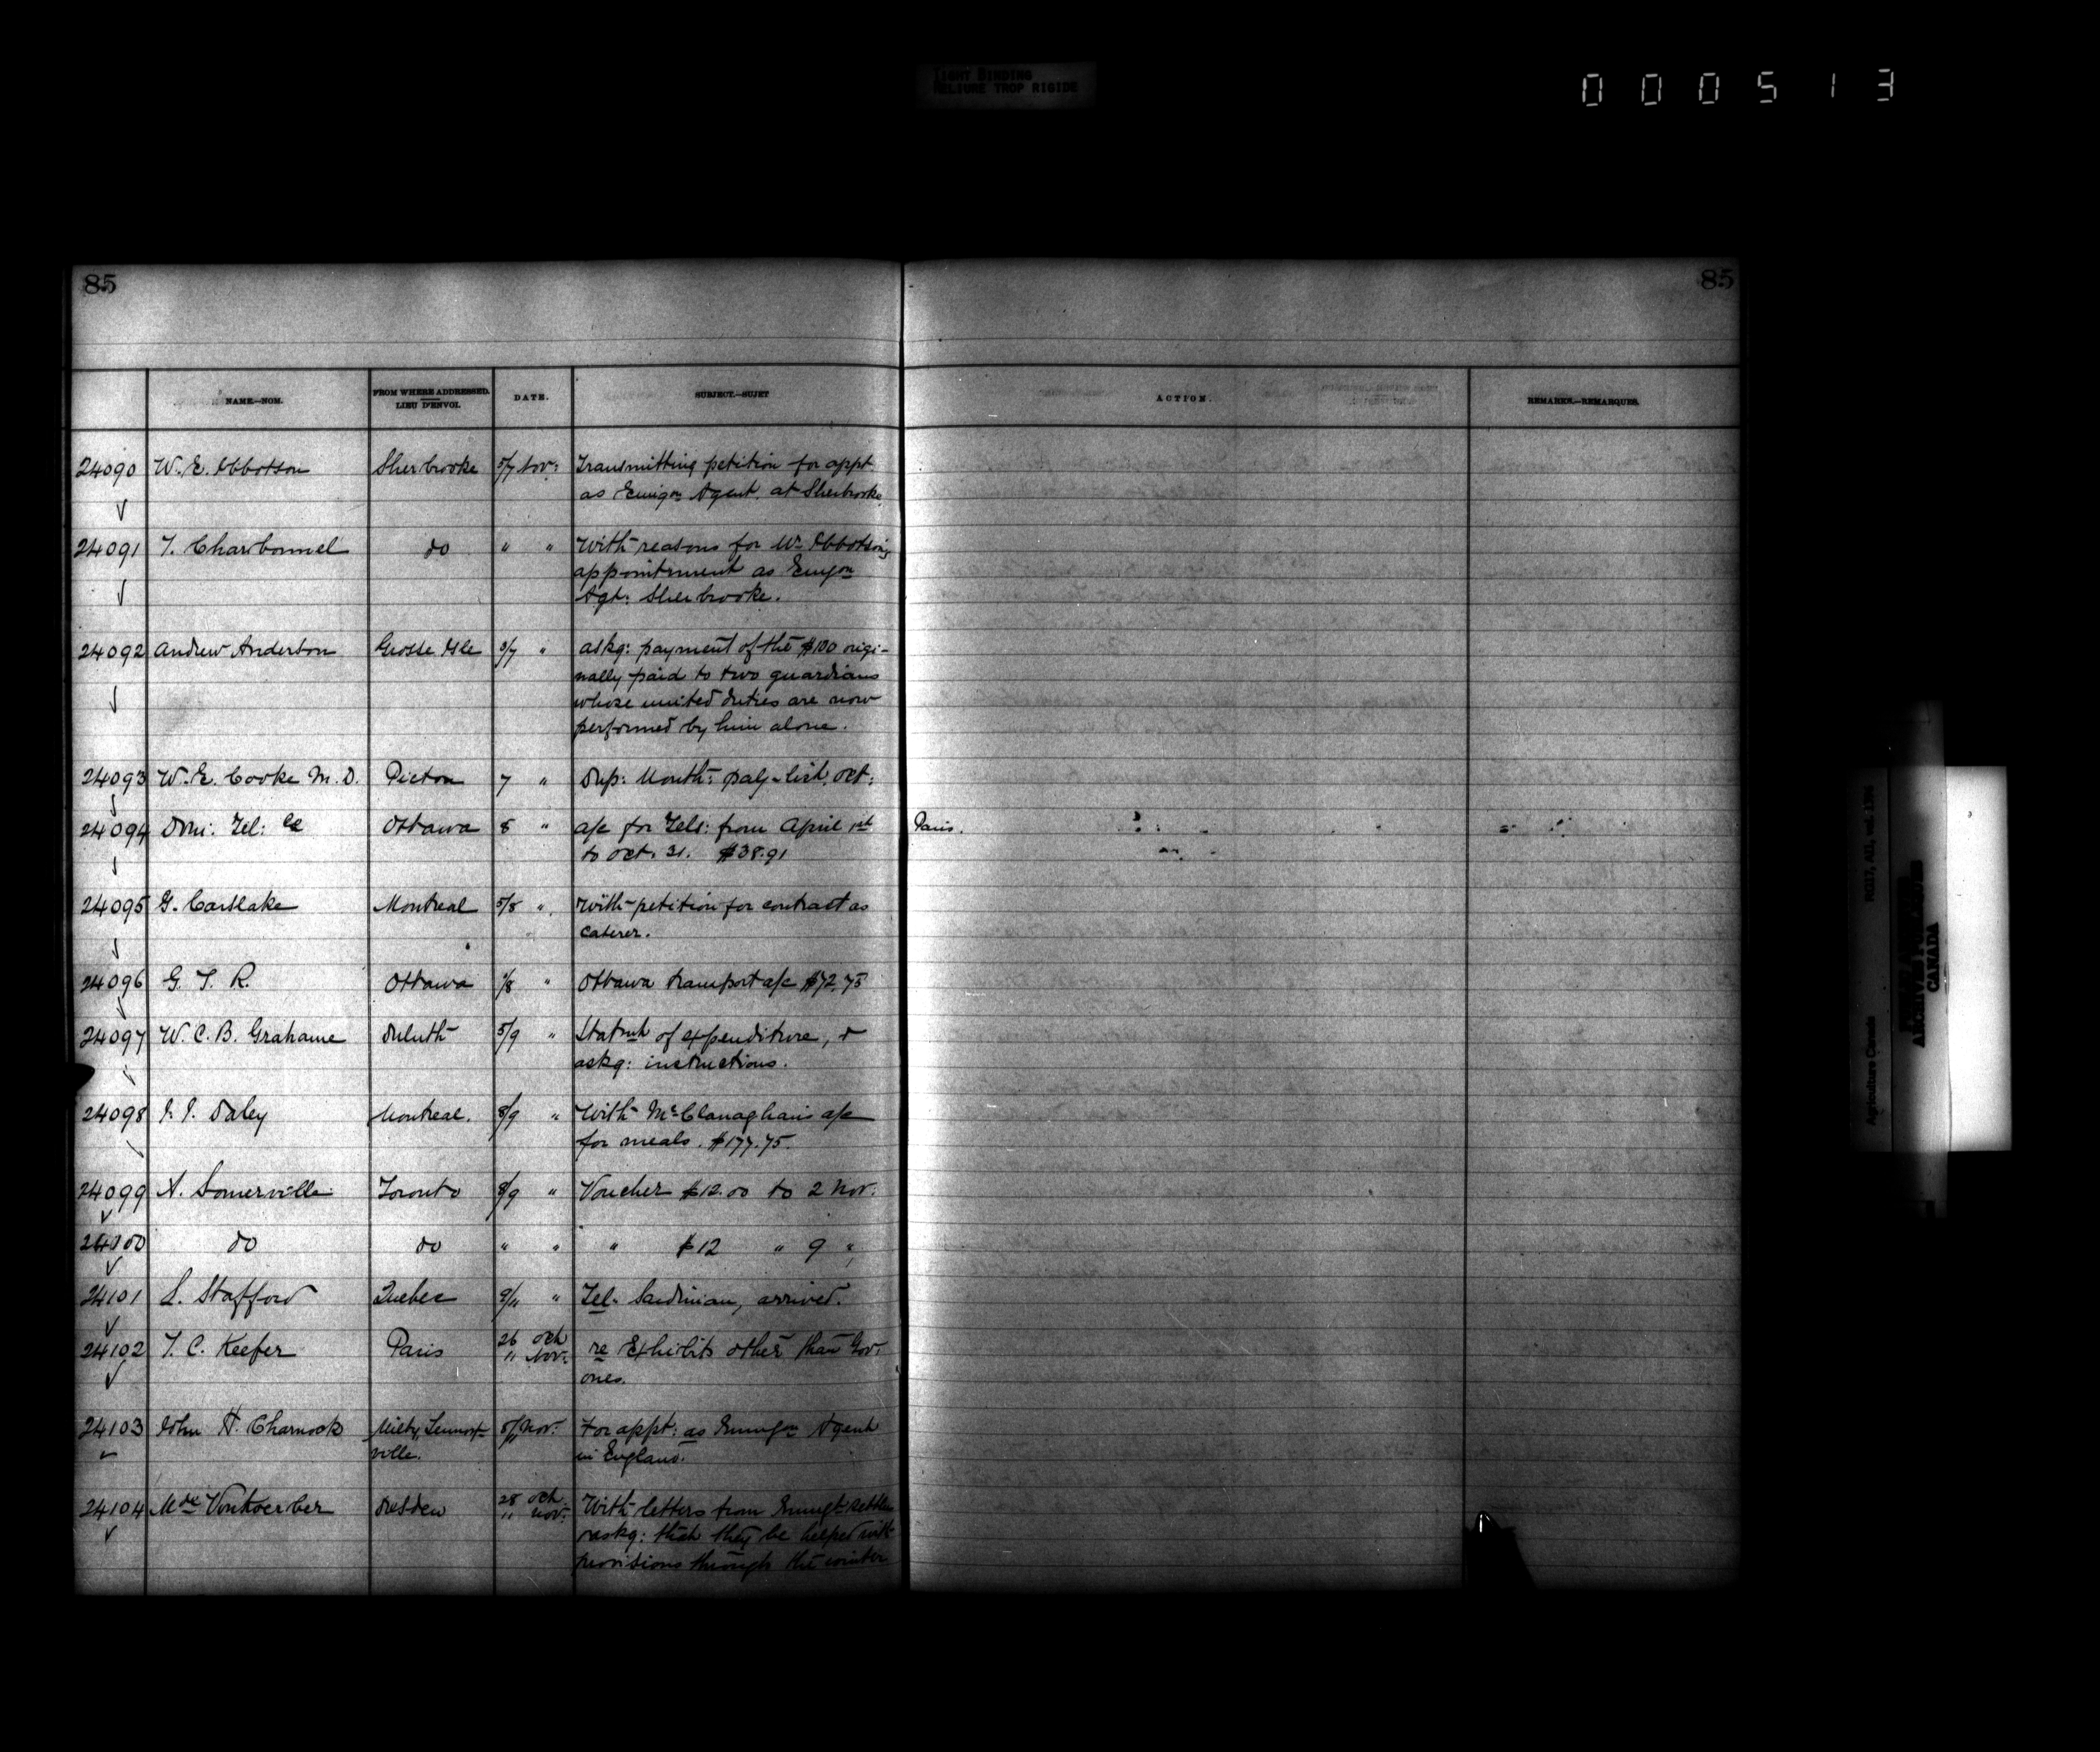 TIGHT BINDING
RELIURE TROP RIGIDE
000513
85
85
NAME.—NOM.
FROM WHERE ADDRESSED.
LIEU D'ENVOI.
DATE.
SUBJECT.—SUJET
ACTION.
REMARKS.—REMARQUES.
24090 W. E. Ibbotson Sherbrooke 5/7 Nov: Transmitting petition for appt
as Emigon Agent. at Sherbrooke
24091 T. Charbonnel do " " With reasons for Mr Ibbotson's
appointment as Emgon
Agt: Sherbrooke.
24092 Andrew Anderson Grosse Isle 3/7 " askg: payment of the $100 origi-
nally paid to two guardians
whose united duties are now
performed by him alone.
24093 W. E. Cooke M. D. Picton 7 " Dup: Month: pay-list, Oct:
24094 Dom: Tel: Co Ottawa 8 " a/c for Tels: from April 1st Paris.
to Oct. 31. $38.91
24095 G. Carslake Montreal 5/8 " With petition for contract as
caterer.
24096 G. T. R. Ottawa /8 " Ottawa transport a/c $72.75
24097 W. C. B. Grahame Duluth 5/9 " Statmt of expenditure, &
askg: instructions.
24098 J. J. Daley Montreal. 8/9 " With McClanaghan's a/c
for meals. $177.75.
24099 A. Somerville Toronto 8/9 " Voucher $12.00 to 2 Nov:
24100 do do " " " $12 " 9 "
24101 L. Stafford Quebec 9/11 " Tel. Sardinian, arrived.
24102 T. C. Keefer Paris 26 Oct
11 Nov: re Exhibits other than Gov:
ones.
24103 John H. Charnock Milby, Lennox-
ville. 8/11 Nov: For appt: as Emmgon Agent
in England.
24104 Mde Von Koerber Dresden 28 Oct
11 Nov: With letters from Emmgt settlers
askg: that they be helped with
provisions through the winter
RG17, AII, vol. 1396
Agriculture Canada
CANADA